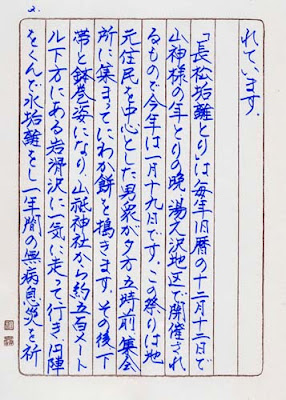 2.
れています。
「長松垢離とり」は毎年旧暦の十二月十二日で
山神様の年とりの晩、湯之沢地区で開催され
るもので今年は一月十九日です。この祭りは地
元住民を中心とした男衆が夕方五時前、集会
所に集まってにわか餅を搗きます。その後、下
帯と鉢巻姿になり、山祇神社から約五百メート
ル下方にある岩滑沢に一気に走って行き、円陣
をくんで水垢離をし一年間の無病息災を祈